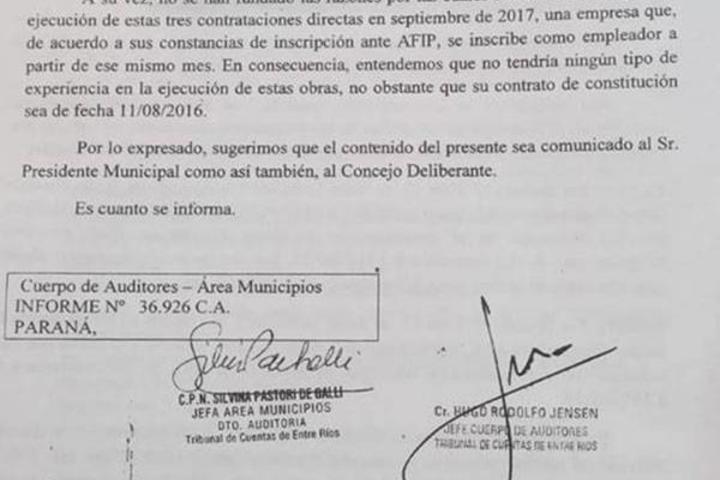 A su vez, no se han fundado las razones por las
ejecución de estas tres contrataciones directas en septiembre de 2017, una empresa que,
de acuerdo a sus constancias de inscripción ante AFIP, se inscribe como empleador a
partir de ese mismo mes. En consecuencia, entendemos que no tendría ningún tipo de
experiencia en la ejecución de estas obras, no obstante que su contrato de constitución
sea de fecha 11/08/2016.
Por lo expresado, sugerimos que el contenido del presente sea comunicado al Sr.
Presidente Municipal como así también, al Concejo Deliberante.
Es cuanto se informa.
Cuerpo de Auditores – Área Municipios
INFORME Nº 36.926 C.A.
PARANÁ,
C.P.N. SILVINA PASTORI DE GALLI
JEFA AREA MUNICIPIOS
DTO. AUDITORIA
Tribunal de Cuentas de Entre Ríos
Cr. HUGO RODOLFO JENSEN
JEFE CUERPO DE AUDITORES
TRIBUNAL DE CUENTAS DE ENTRE RIOS